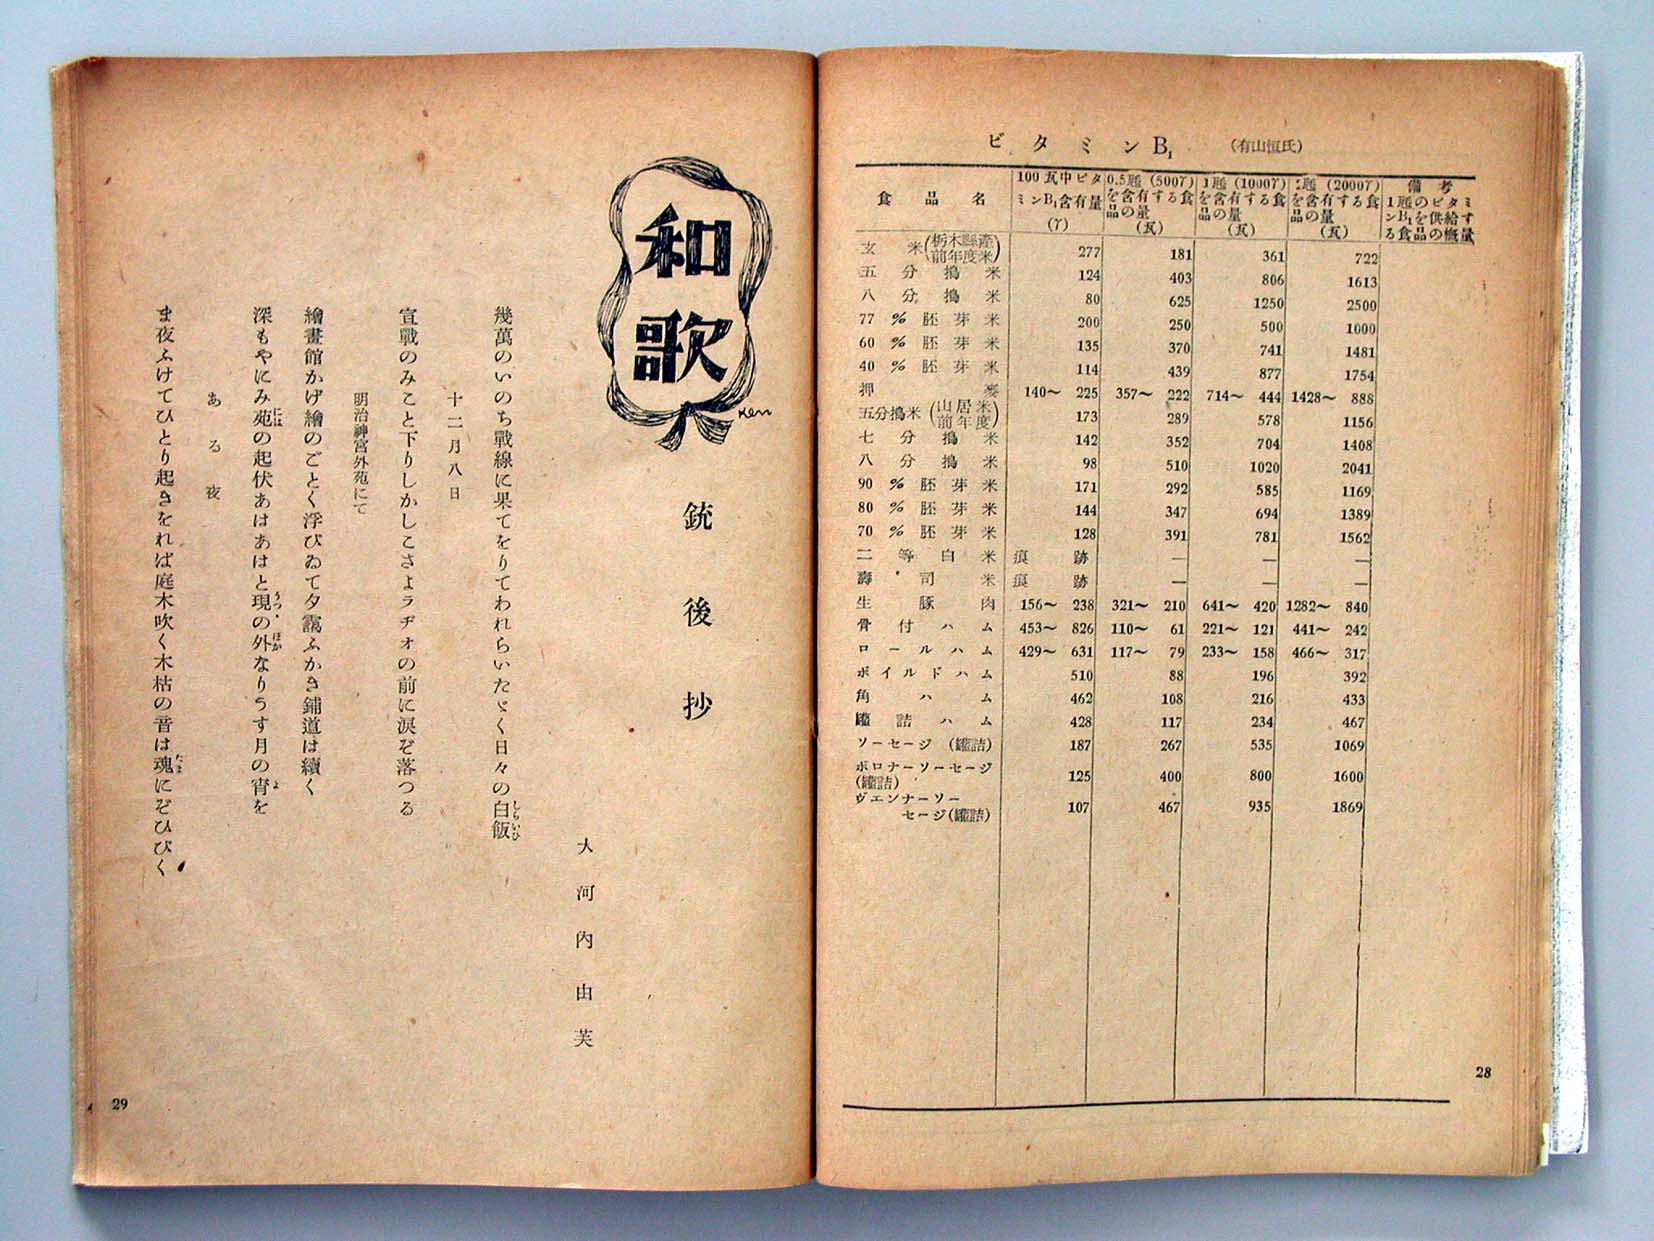 ビタミンB₁ (有山恒氏)
食品名 100瓦中ビタミンB₁含有量(γ) 0.5瓱(500γ)を含有する食品の量(瓦) 1瓱(1000γ)を含有する食品の量(瓦) 2瓱(2000γ)を含有する食品の量(瓦) 備考 1瓱のビタミンB₁を供給する食品の概量
玄米(栃木縣產前年度米) 277 181 361 722
五分搗米 124 403 806 1613
八分搗米 80 625 1250 2500
77%胚芽米 200 250 500 1000
60%胚芽米 135 370 741 1481
40%胚芽米 114 439 877 1754
押麥 140〜225 357〜222 714〜444 1428〜888
五分搗米(山居米前年度) 173 289 578 1156
七分搗米 142 352 704 1408
八分搗米 98 510 1020 2041
90%胚芽米 171 292 585 1169
80%胚芽米 144 347 694 1389
70%胚芽米 128 391 781 1562
二等白米 痕跡 — — —
壽司米 痕跡 — — —
生豚肉 156〜238 321〜210 641〜420 1282〜840
骨付ハム 453〜826 110〜61 221〜121 441〜242
ロールハム 429〜631 117〜79 233〜158 466〜317
ボイルドハム 510 88 196 392
角ハム 462 108 216 433
罐詰ハム 428 117 234 467
ソーセージ(罐詰) 187 267 535 1069
ボロナーソーセージ(罐詰) 125 400 800 1600
ヴエンナーソーセージ(罐詰) 107 467 935 1869
28
和歌
Ken
銃後抄
大河內由芙
幾萬のいのち戰線に果てをりてわれらいたゞく日々の白飯(しらいひ)
十二月八日
宣戰のみこと下りしかしこさよラヂオの前に淚ぞ落つる
明治神宮外苑にて
繪畫館かげ繪のごとく浮びゐて夕靄ふかき鋪道は續く
深もやにみ苑(には)の起伏あはあはと現(うつゝ)の外(ほか)なりうす月の宵(よ)を
ある夜
ま夜ふけてひとり起きをれば庭木吹く木枯の音は魂(たま)にぞひびく
29